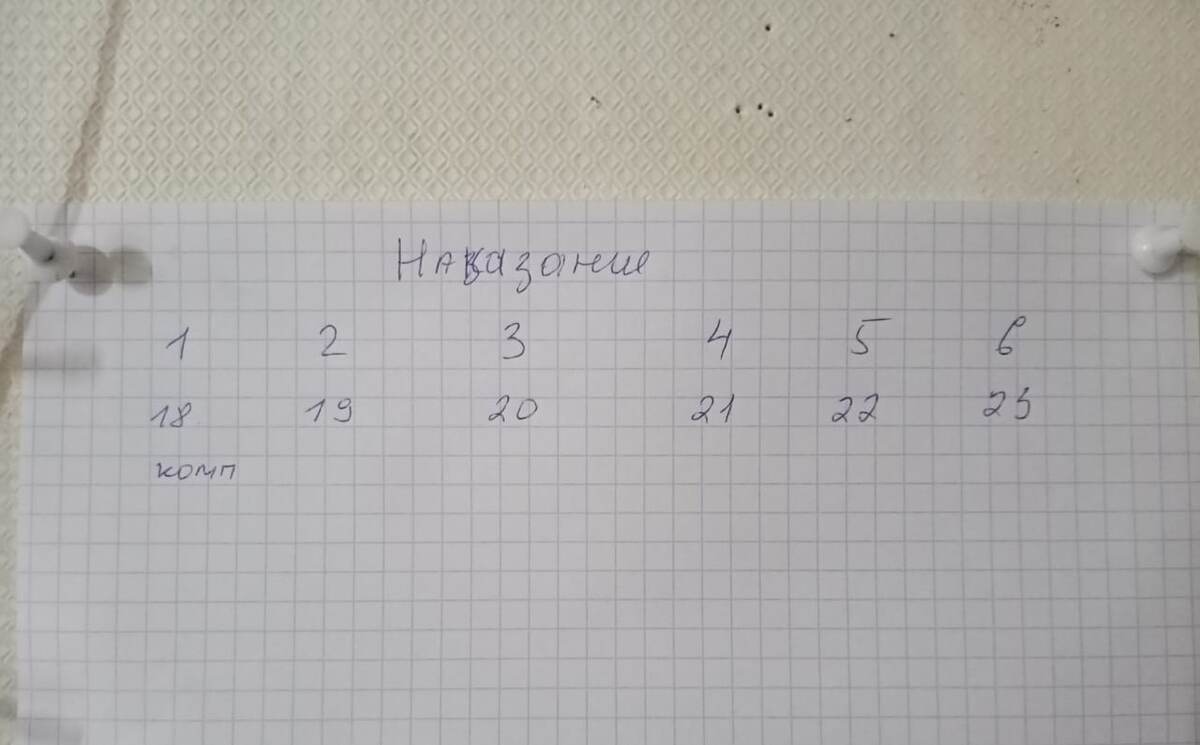 Наказание
1 2 3 4 5 6
18 19 20 21 22 23
комп